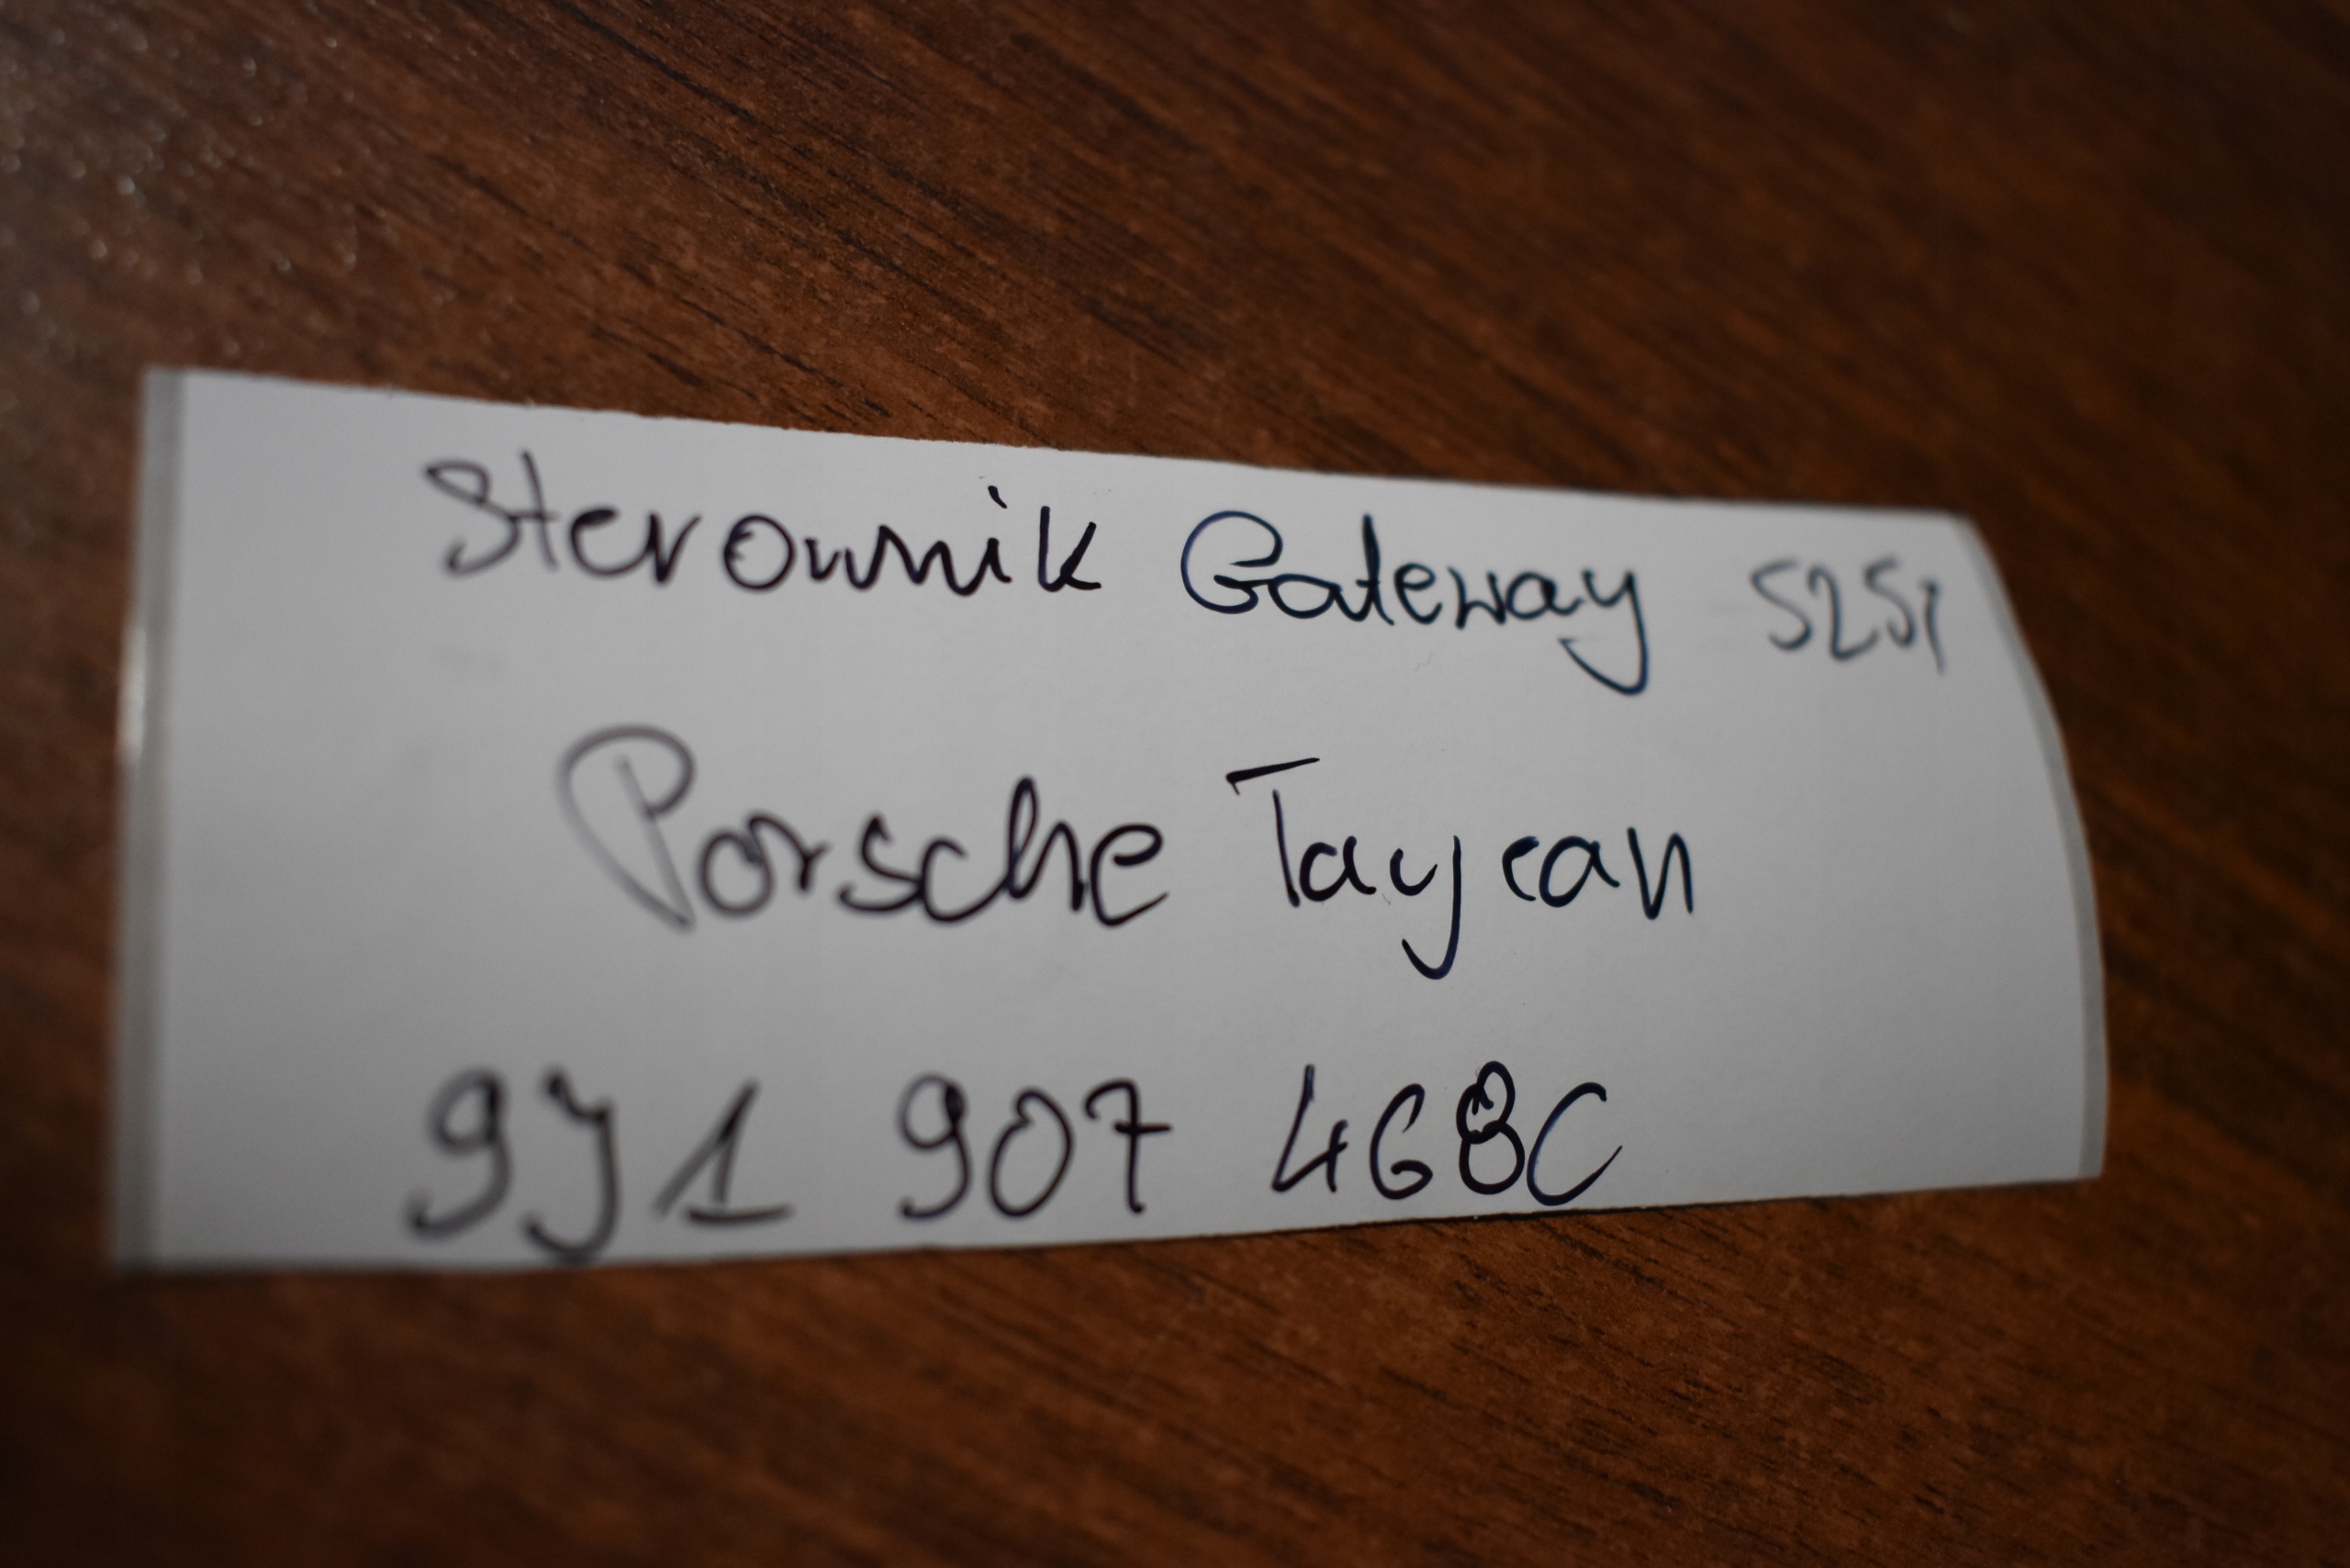 Sterownik Gateway 5251
Porsche Taycan
9J1 907 468C